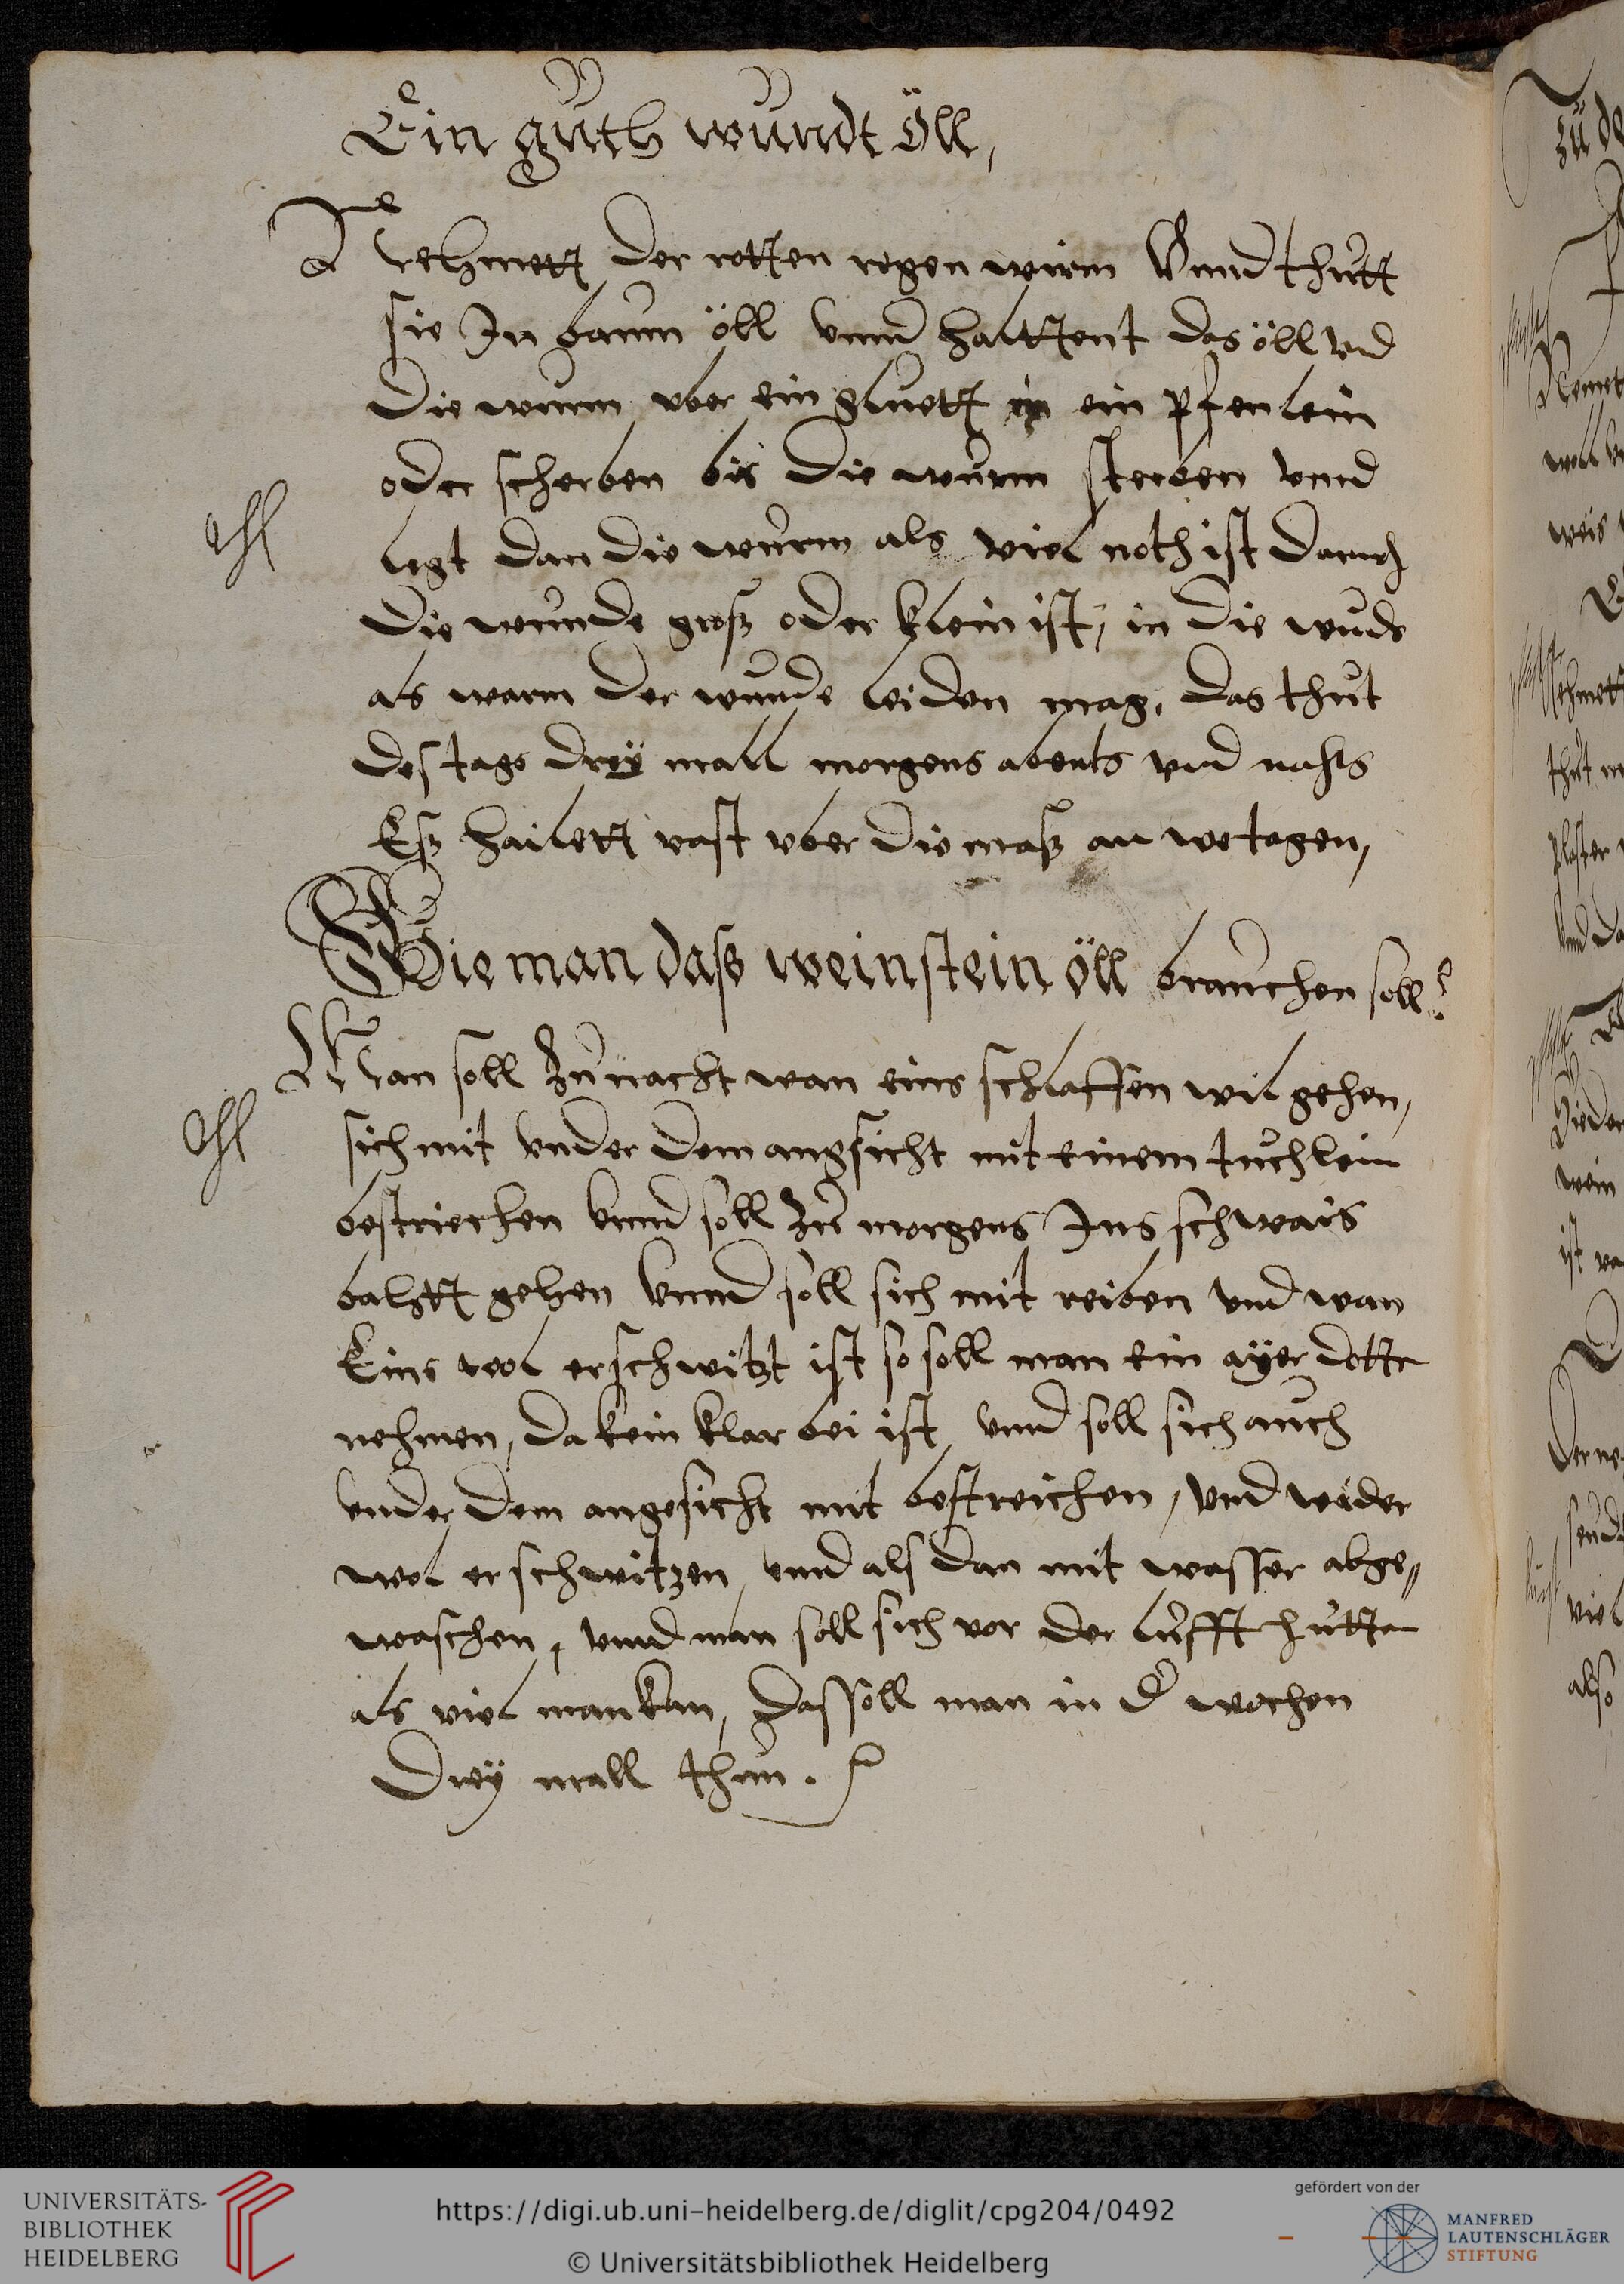 Ein guth wundt Öll,
Nehmett der rotten regen wirm Vnnd thutt
sie In baum öll vnnd halttent das öll vnd
die wurm vber ein gluett in ein pfenlein
oder scherben bis die wurm sterben vnnd
legt dan die wurm als viel noth ist darnach
die wunde groß oder klein ist, in die wunde
als warm der wunde leiden mag, das thut
des tags drey mall morgens abents vnd nachts
Eß hailett vast vber die maß an wetagen,
Wie man daß weinstein öll brauchen soll
Man soll zu nacht wan eins schlaffen wil gehen,
sich mit vnder dem angsicht mit einem tuchlein
bestriechen vnnd soll zu morgens Ins schwais
bahtt gehen Vnnd soll sich mit reiben vnd wan
Eins wol erschwitzt ist so soll man ein ayer dotter
nehmen, da kein klar bei ist, vnd soll sich auch
vnder dem angesicht mit bestreichen, vnd wider
wol erschwitzen, vnd als dan mit wasser abge„
waschen, vnnd man soll sich vor der lufft hutten
als viel man kan, Das soll man in d' wochen
Drey mall thun.
zu
UNIVERSITÄTS-
BIBLIOTHEK
HEIDELBERG
https://digi.ub.uni-heidelberg.de/diglit/cpg204/0492
© Universitätsbibliothek Heidelberg
gefördert von der
MANFRED
LAUTENSCHLÄGER
STIFTUNG